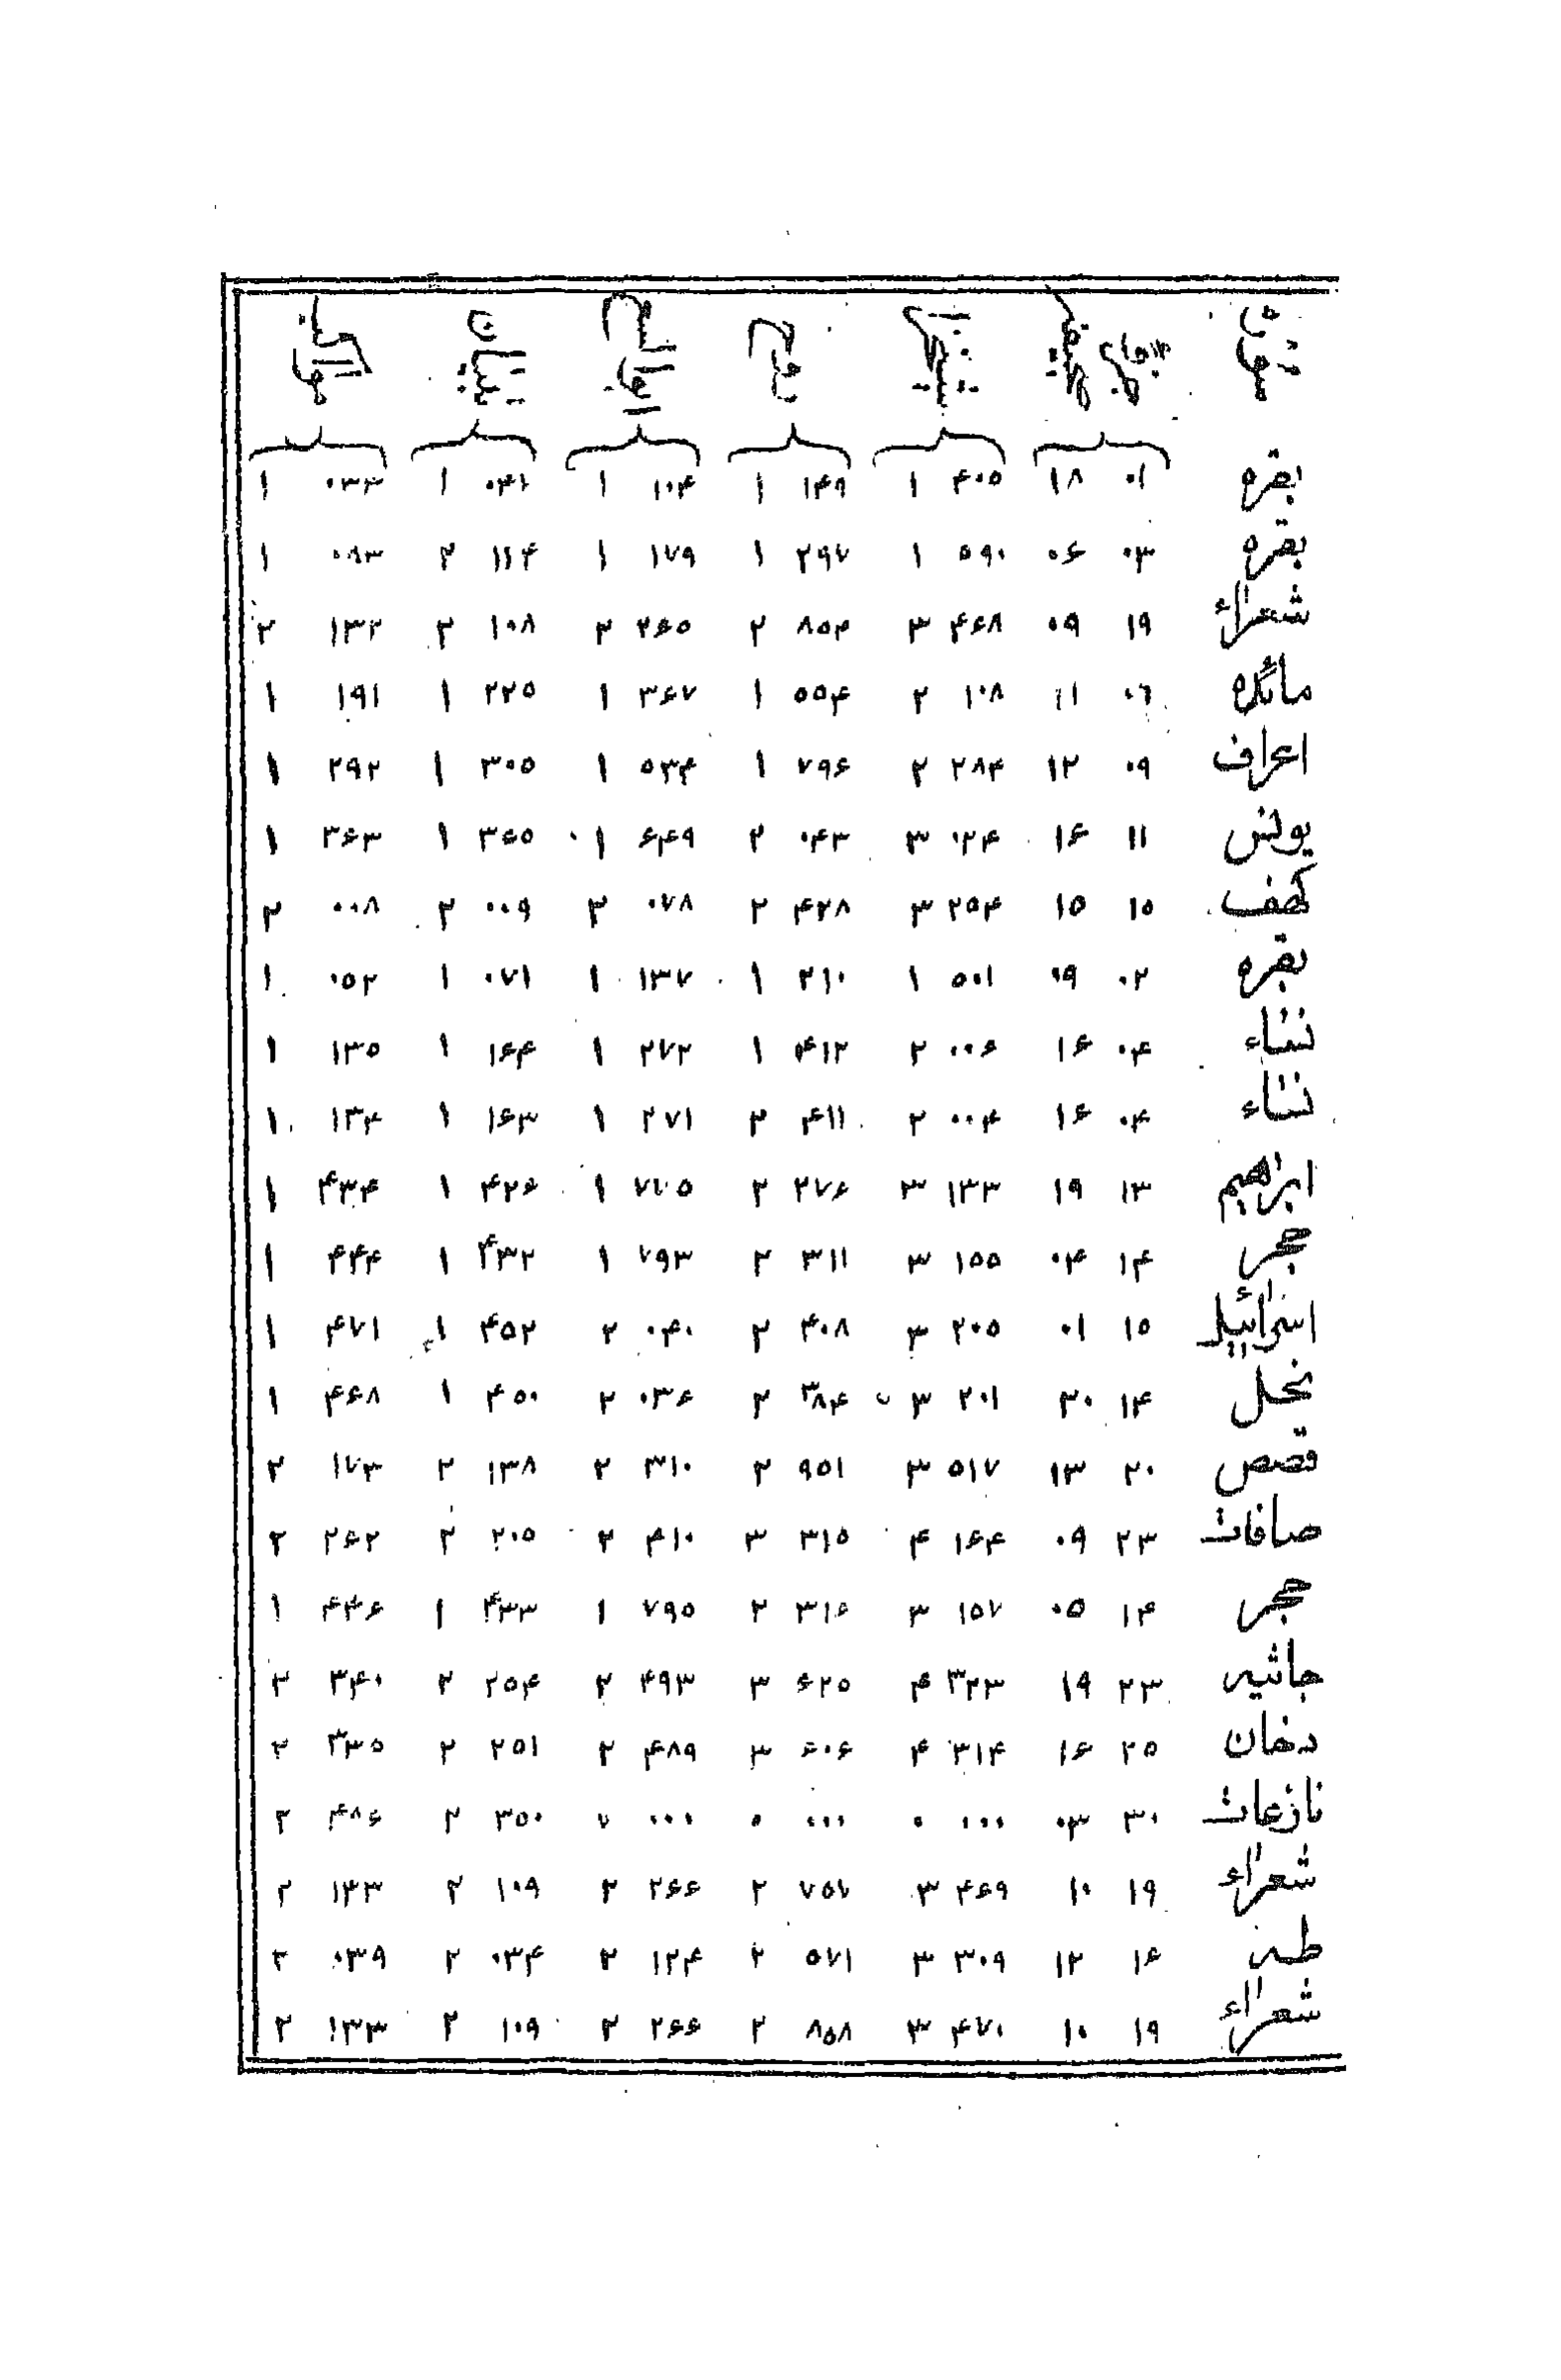 بقره ۰۱ ۱۸ ۴۰۵ ۱ ۱۴۹ ۱ ۱۰۴ ۱ ۱ ۰۳۳ ۱
بقره ۰۳ ۰۶ ۵۹۰ ۱ ۲۹۷ ۱ ۱۷۹ ۱ ۱۱۴ ۲ ۰۸۳ ۱
شعراء ۱۹ ۰۹ ۴۶۸ ۳ ۸۵۴ ۲ ۲۶۵ ۲ ۱۰۸ ۲ ۱۳۲ ۲
مائده ۰۶ ۱۱ ۱۰۸ ۲ ۵۵۴ ۱ ۳۶۷ ۱ ۲۲۵ ۱ ۱۹۱ ۱
اعراف ۰۹ ۱۲ ۲۸۴ ۲ ۷۹۶ ۱ ۵۳۴ ۱ ۳۰۵ ۱ ۲۹۲ ۱
یونس ۱۱ ۱۶ ۰۲۴ ۳ ۰۴۳ ۲ ۶۴۹ ۱ ۳۶۵ ۱ ۳۶۳ ۱
کهف ۱۵ ۱۵ ۲۵۴ ۳ ۴۲۸ ۲ ۰۷۸ ۲ ۰۰۹ ۲ ۰۰۸ ۲
بقره ۰۲ ۰۹ ۵۰۱ ۱ ۲۱۰ ۱ ۱۳۷ ۱ ۰۷۱ ۱ ۰۵۲ ۱
نساء ۰۴ ۱۶ ۰۰۶ ۲ ۴۱۲ ۱ ۲۷۲ ۱ ۱۶۴ ۱ ۱۳۵ ۱
نساء ۰۴ ۱۶ ۰۰۴ ۲ ۴۱۱ ۲ ۲۷۱ ۱ ۱۶۳ ۱ ۱۳۴ ۱
ابراهیم ۱۳ ۱۹ ۱۳۳ ۳ ۲۷۶ ۲ ۷۷۵ ۱ ۴۲۶ ۱ ۴۳۴ ۱
حجر ۱۴ ۰۴ ۱۵۵ ۳ ۳۱۱ ۲ ۷۹۳ ۱ ۴۳۲ ۱ ۴۴۴ ۱
اسرائیل ۱۵ ۰۱ ۲۰۵ ۳ ۴۰۸ ۲ ۰۴۰ ۲ ۴۵۲ ۱ ۴۷۱ ۱
نحل ۱۴ ۲۰ ۲۰۱ ۳ ۳۸۴ ۲ ۰۳۶ ۲ ۴۵۰ ۱ ۴۶۸ ۱
قصص ۲۰ ۱۳ ۵۱۷ ۳ ۹۵۱ ۲ ۳۱۰ ۲ ۱۳۸ ۲ ۱۷۳ ۲
صافات ۲۳ ۰۹ ۱۶۴ ۴ ۳۱۵ ۳ ۴۱۰ ۲ ۲۰۵ ۲ ۲۶۲ ۲
حجر ۱۴ ۰۵ ۱۵۷ ۳ ۳۱۶ ۲ ۷۹۵ ۱ ۴۳۳ ۱ ۴۴۶ ۱
جاثیه ۲۳ ۱۹ ۳۲۳ ۴ ۶۲۵ ۳ ۴۹۳ ۲ ۲۵۴ ۲ ۳۴۰ ۲
دخان ۲۵ ۱۶ ۳۱۴ ۴ ۶۰۶ ۳ ۴۸۹ ۲ ۲۵۱ ۲ ۳۳۵ ۲
نازعات ۳۰ ۰۳ ۰۰۰ ۰ ۰۰۰ ۰ ۰۰۰ ۷ ۳۵۰ ۲ ۴۸۶ ۲
شعراء ۱۹ ۱۰ ۴۶۹ ۳ ۷۵۷ ۲ ۲۶۶ ۲ ۱۰۹ ۲ ۱۳۳ ۲
طه ۱۶ ۱۲ ۳۰۹ ۳ ۵۷۱ ۲ ۱۲۴ ۲ ۰۳۴ ۲ ۰۳۹ ۲
شعراء ۱۹ ۱۰ ۴۷۰ ۳ ۸۵۸ ۲ ۲۶۶ ۲ ۱۰۹ ۲ ۱۳۳ ۲